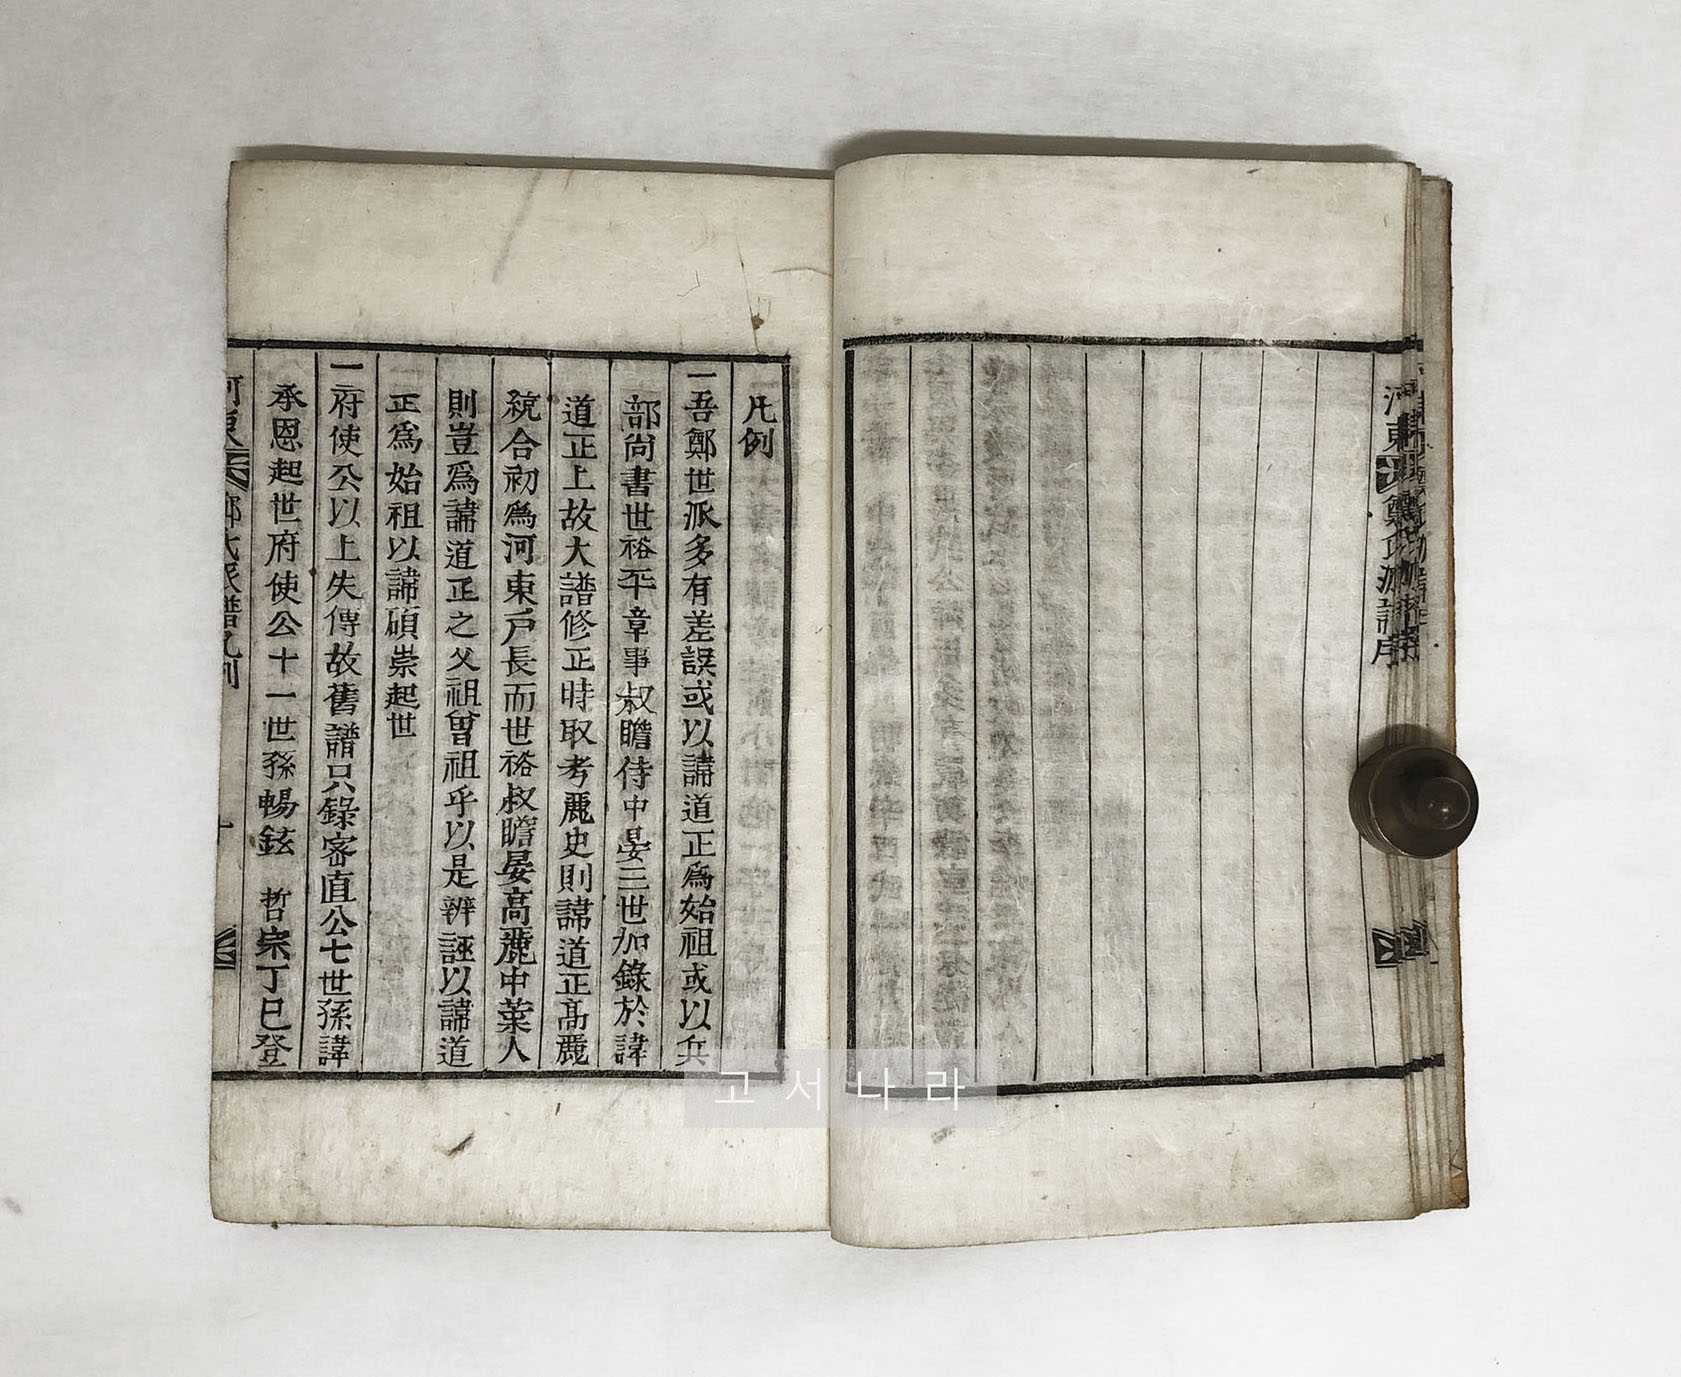 河東鄭氏派譜序
凡例
一吾鄭世派多有差誤或以諱道正爲始祖或以兵
部尙書世裕平章事叔瞻侍中晏三世加錄於諱
道正上故大譜修正時取考麗史則諱道正高麗
統合初爲河東戶長而世裕叔瞻晏高麗中葉人
則豈爲諱道正之父祖曾祖乎以是辨誣以諱道
正爲始祖以諱碩崇起世
一府使公以上失傳故舊譜只錄密直公七世孫諱
承恩起世府使公十一世孫暢鉉 哲宗丁巳登
河東 鄭氏派譜凡例
고서나라